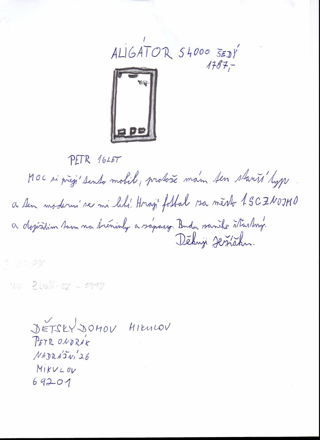 ALIGÁTOR S4000 ŠEDÝ
1787,-
PETR 16LET
MOC si přeji tento mobil, protože mám ten starší typ
a ten moderní se mi líbí. Hraji fotbal za město 1SCZNOJMO
a dojíždím tam na tréninky a zápasy. Budu šťastný.
Děkuji Ježíšku.
DĚTSKÝ DOMOV MIKULOV
PETR ONDRÁK
NÁDRAŽNÍ 26
MIKULOV
69201